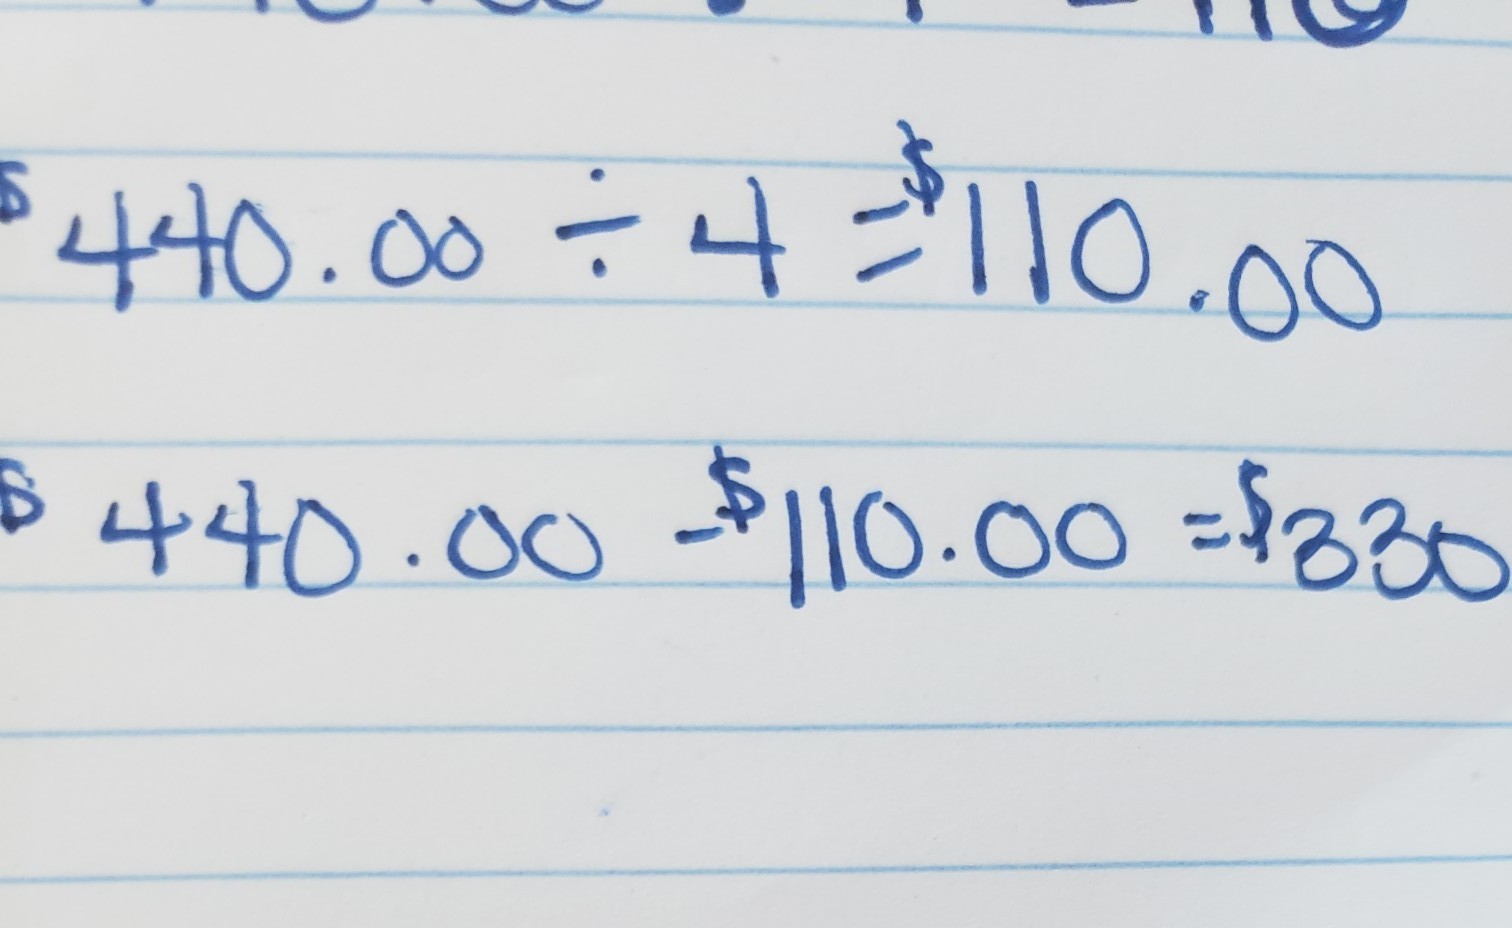 $ 440.00 ÷ 4 = $110.00
$ 440.00 - $110.00 = $330